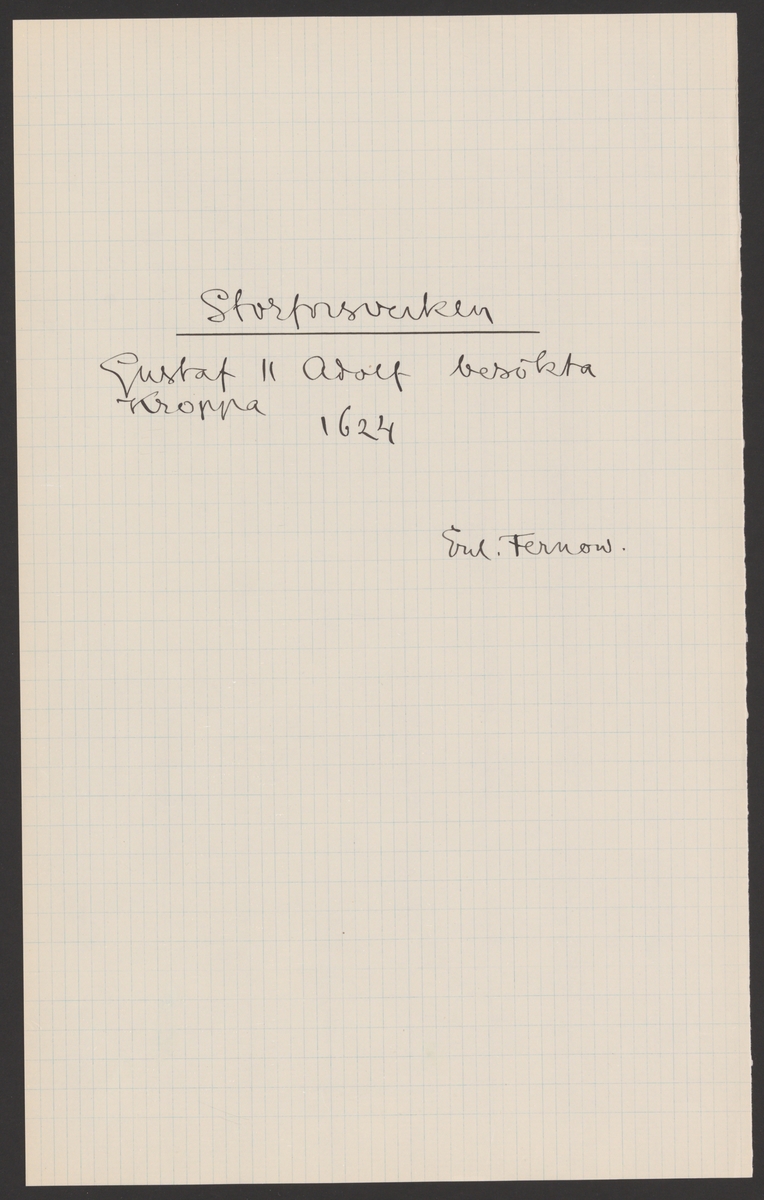 Storforsverken
Gustaf II Adolf besökta
Kroppa 1624
Enl. Fernow.